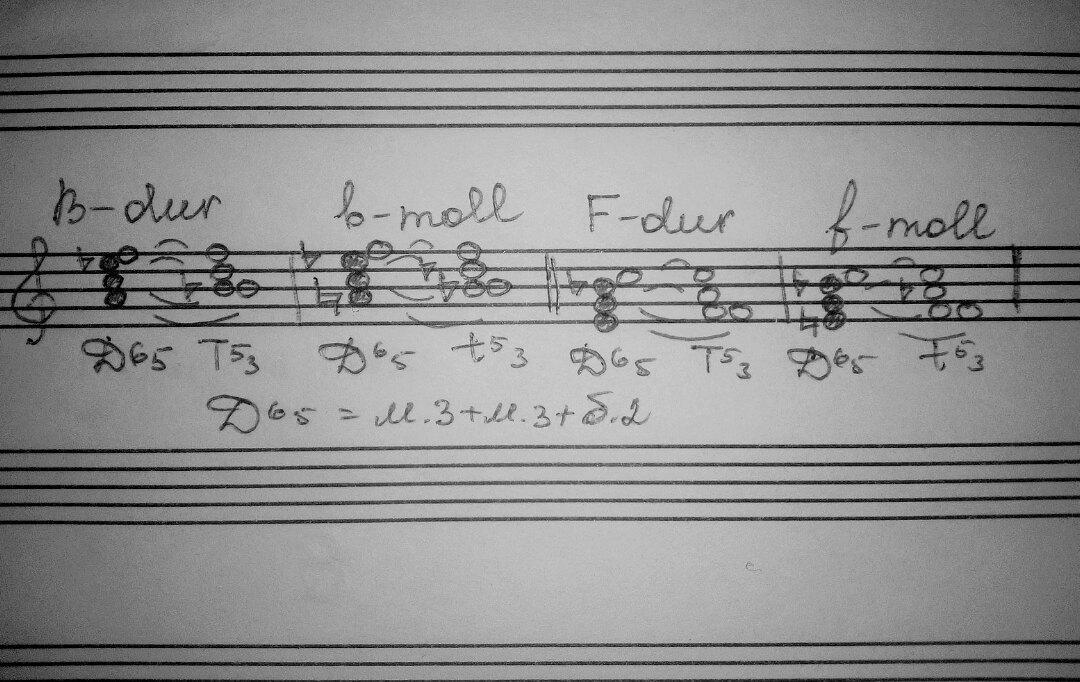 B-dur b-moll F-dur f-moll
D65 T53 D65 t53 D65 T53 D65 t53
D65 = м.3+м.3+б.2